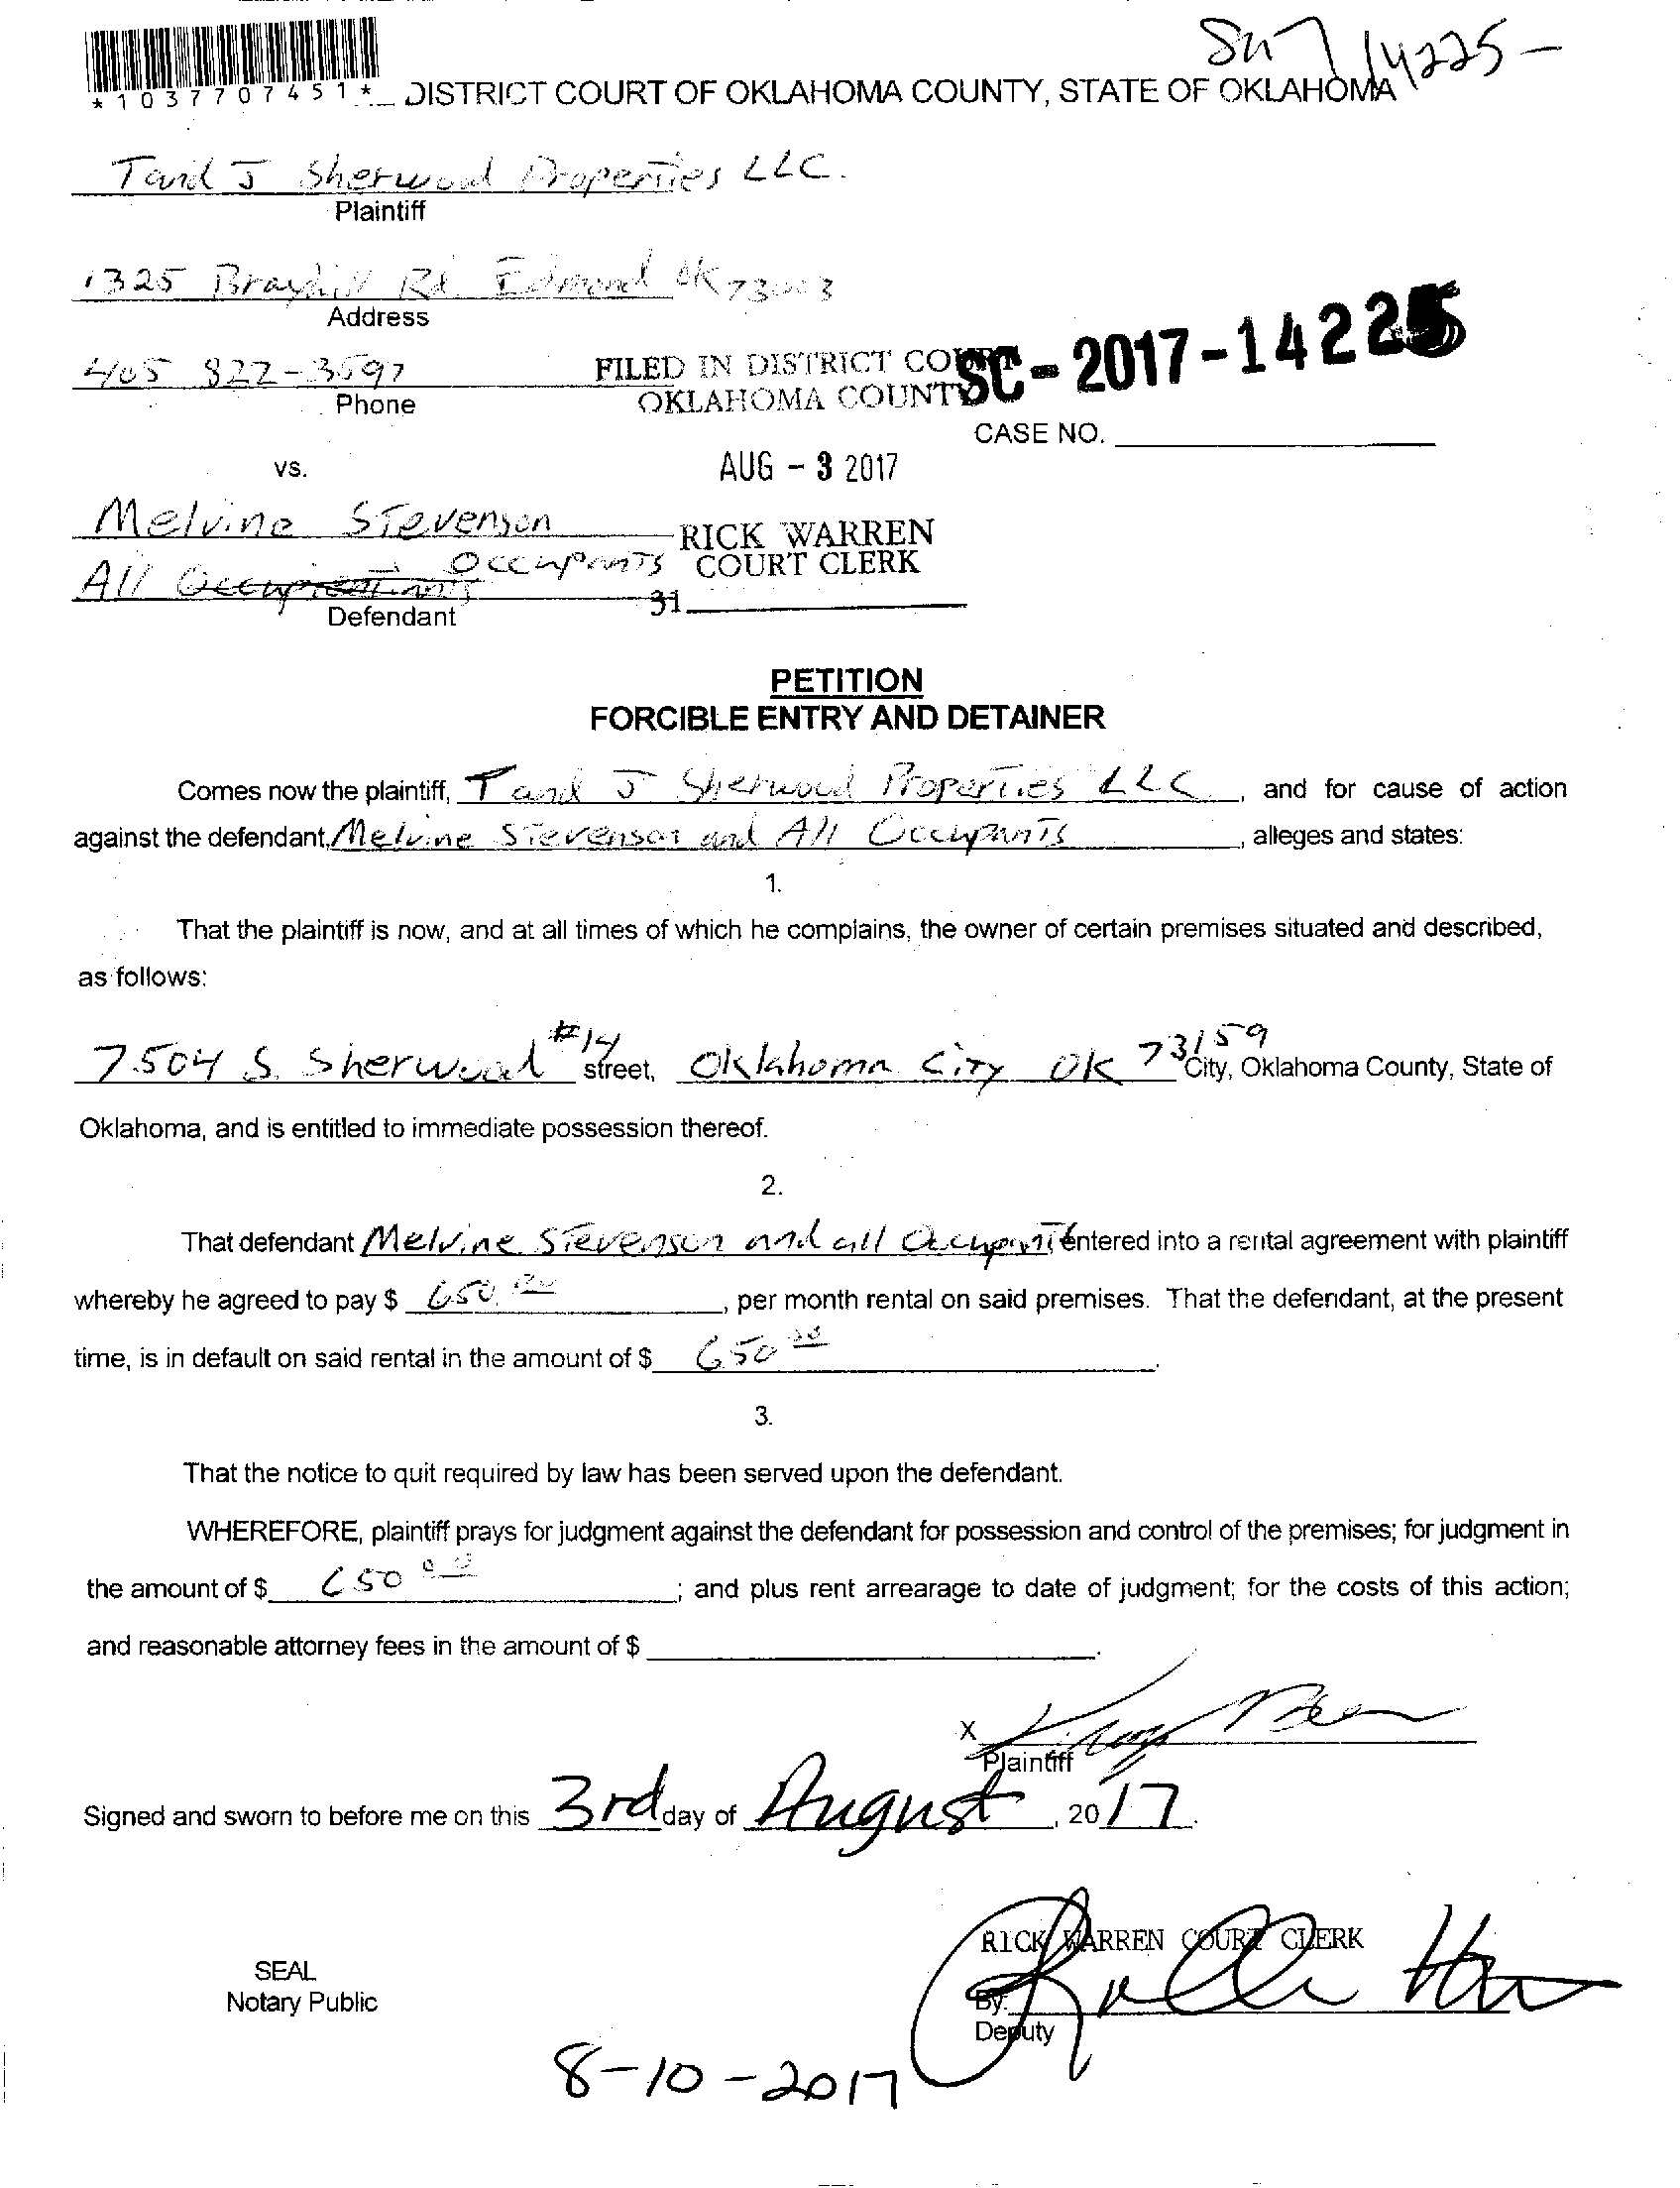 SC 17 14225-
*1037707451*
DISTRICT COURT OF OKLAHOMA COUNTY, STATE OF OKLAHOMA
T and J Sherwood Properties LLC.
Plaintiff
1325 Brayhill Rd. Edmond OK 73003
Address
405 822-3597
Phone
FILED IN DISTRICT COURT
OKLAHOMA COUNTY
SC-2017-14225
CASE NO.
vs.
AUG - 3 2017
Melvine Stevenson
RICK WARREN
COURT CLERK
All Occupants
31
Defendant
PETITION
FORCIBLE ENTRY AND DETAINER
Comes now the plaintiff, T and J Sherwood Properties LLC, and for cause of action
against the defendant, Melvine Stevenson and All Occupants, alleges and states:
1.
That the plaintiff is now, and at all times of which he complains, the owner of certain premises situated and described,
as follows:
7504 S. Sherwood #14 street, Oklahoma City OK 73159 City, Oklahoma County, State of
Oklahoma, and is entitled to immediate possession thereof.
2.
That defendant Melvine Stevenson and all Occupant entered into a rental agreement with plaintiff
whereby he agreed to pay $ 650.00, per month rental on said premises. That the defendant, at the present
time, is in default on said rental in the amount of $ 650 00.
3.
That the notice to quit required by law has been served upon the defendant.
WHEREFORE, plaintiff prays for judgment against the defendant for possession and control of the premises; for judgment in
the amount of $ 650 00; and plus rent arrearage to date of judgment; for the costs of this action;
and reasonable attorney fees in the amount of $ .
X
Plaintiff
Signed and sworn to before me on this 3rd day of August, 2017.
RICK WARREN COURT CLERK
SEAL
Notary Public
By:
Deputy
8-10-2017